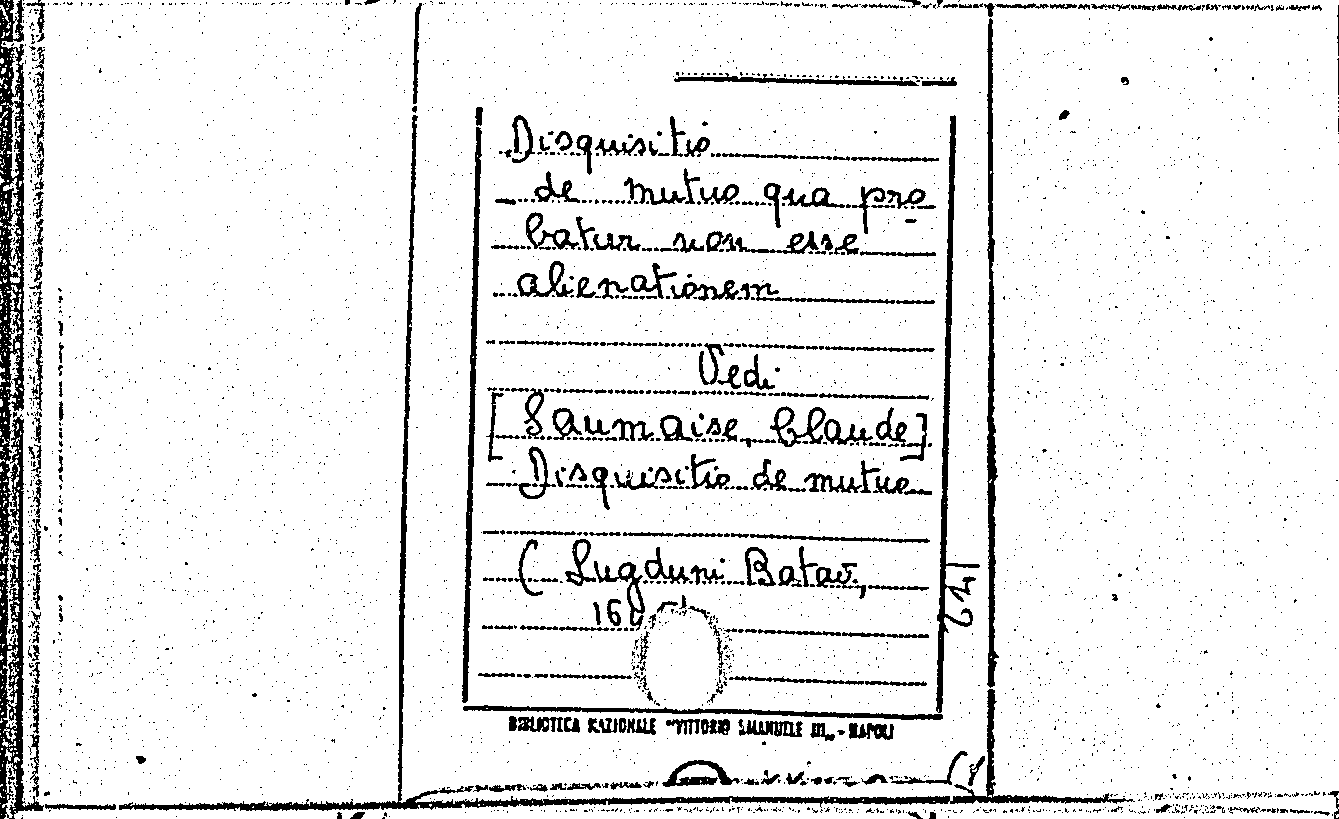 Disquisitio
de mutuo qua pro
batur non esse
alienationem
Vedi
[Saumaise, Claude]
Disquisitio de mutuo
( Lugduni Batav.,
BIBLIOTECA NAZIONALE "VITTORIO EMANUELE III" - NAPOLI